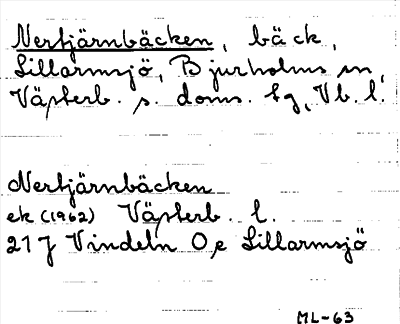 Nertjärnbäcken, bäck,
Lillarmsjö, Bjurholms sn,
Västerb. s. doms. tg, Vb. l.
Nertjärnbäcken
ek (1962) Västerb. l.
21 J Vindeln O,e Lillarmsjö
ML-63